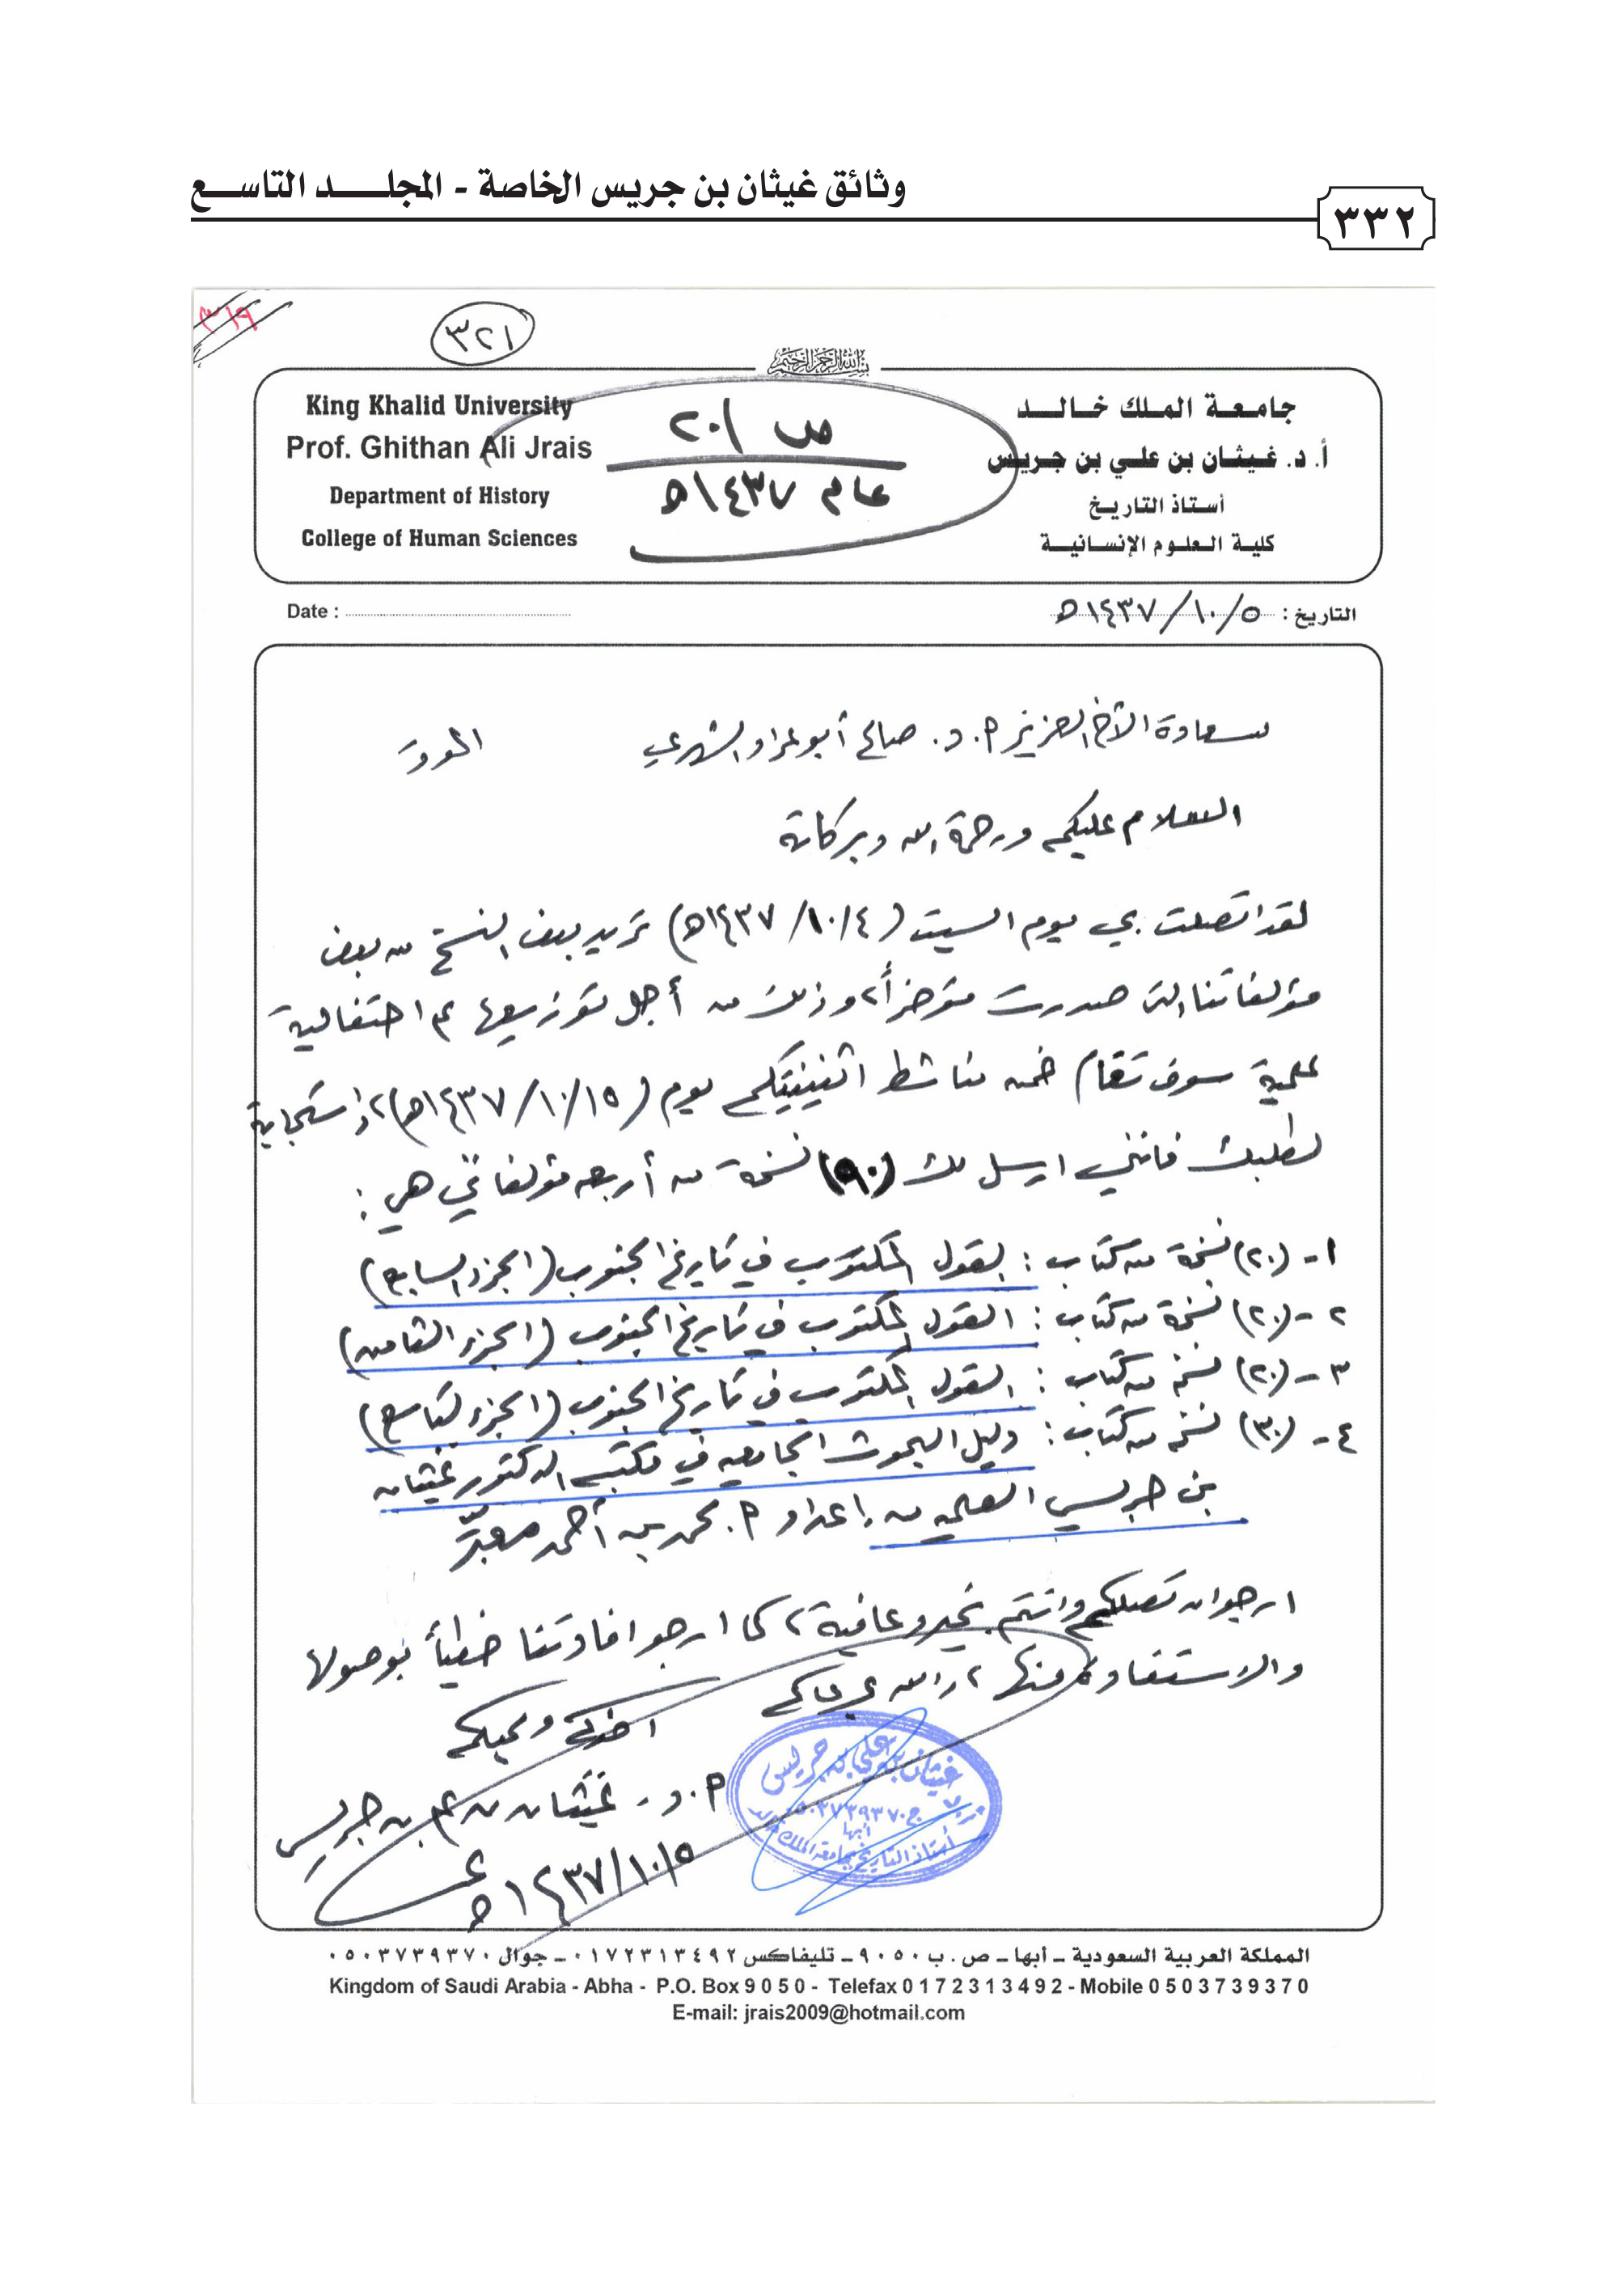 وثائق غيثان بن جريس الخاصة - المجلد التاسع
٣٣٢
٣١٩
٣٢١
بسم الله الرحمن الرحيم
جامعة الملك خالد
أ. د. غيثان بن علي بن جريس
أستاذ التاريخ
كلية العلوم الإنسانية
King Khalid University
Prof. Ghithan Ali Jrais
Department of History
College of Human Sciences
ص ٢٠١
عام ١٤٣٧هـ
التاريخ : ٥/١٠/١٤٣٧هـ
Date :
سعادة الأخ العزيز أ. د. صالح أبو عراد الشهري الموقر
السلام عليكم ورحمة الله وبركاته
لقد اتصلت بي يوم السبت (٤/١٠/١٤٣٧هـ) تريد بعض النسخ من بعض
مؤلفاتنا التي صدرت مؤخراً، وذلك من أجل توزيعها في احتفالية
علمية سوف تقام ضمن مناشط اثنينيتكم يوم (١٥/١٠/١٤٣٧هـ)، واستجابة
لطلبك فإنني ارسل لك (٩٠) نسخة من أربعة مؤلفاتي هي :
١- (٢٠) نسخة من كتاب : القول المكتوب في تاريخ الجنوب (الجزء السابع)
٢- (٢٠) نسخة من كتاب : القول المكتوب في تاريخ الجنوب (الجزء الثامن)
٣- (٢٠) نسخة من كتاب : القول المكتوب في تاريخ الجنوب (الجزء التاسع)
٤- (٣٠) نسخة من كتاب : دليل البحوث الجامعية في مكتبة الدكتور غيثان
بن جريس العلمية من إعداد أ. محمد بن أحمد معبّر
ارجو ان تصلكم وانتم بخير وعافية، كما ارجو افادتنا خطياً بوصولها
والاستفادة منها، والله يرعاكم
اخوكم ومحبكم
أ. د. غيثان بن علي بن جريس
٥/١٠/١٤٣٧هـ
غيثان بن علي بن جريس
ج ٠٥٠٣٧٣٩٣٧٠
أبها
أستاذ التاريخ بجامعة الملك خالد
المملكة العربية السعودية – أبها – ص . ب ٩٠٥٠ – تليفاكس ٠١٧٢٣١٣٤٩٢ – جوال ٠٥٠٣٧٣٩٣٧٠
Kingdom of Saudi Arabia - Abha - P.O. Box 9050 - Telefax 0172313492 - Mobile 0503739370
E-mail: jrais2009@hotmail.com